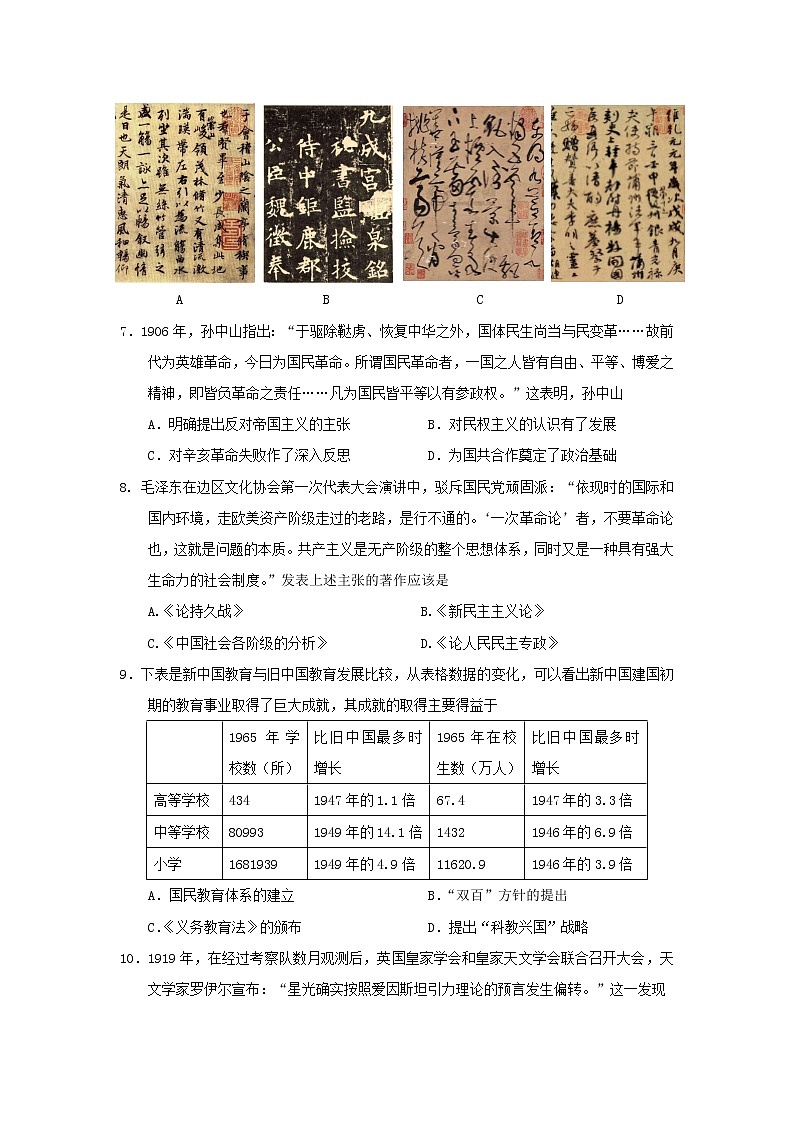 于會稽山陰之蘭亭脩稧事
也羣賢畢至少長咸集此地
有峻領茂林脩竹又有清流激
湍暎帶左右引以為流觴曲水
列坐其次雖無絲竹管弦之
盛一觴一詠亦足以暢敘幽情
是日也天朗氣清惠風和暢仰
九成宮醴泉銘
秘書監撿挍
侍中鉅鹿郡
公臣魏徵奉
維乾元元年歲次戊戌九月庚
A B C D
7．1906 年，孙中山指出：“于驱除鞑虏、恢复中华之外，国体民生尚当与民变革……故前
代为英雄革命，今日为国民革命。所谓国民革命者，一国之人皆有自由、平等、博爱之
精神，即皆负革命之责任……凡为国民皆平等以有参政权。”这表明，孙中山
A．明确提出反对帝国主义的主张 B．对民权主义的认识有了发展
C．对辛亥革命失败作了深入反思 D．为国共合作奠定了政治基础
8. 毛泽东在边区文化协会第一次代表大会演讲中，驳斥国民党顽固派：“依现时的国际和
国内环境，走欧美资产阶级走过的老路，是行不通的。‘一次革命论’者，不要革命论
也，这就是问题的本质。共产主义是无产阶级的整个思想体系，同时又是一种具有强大
生命力的社会制度。”发表上述主张的著作应该是
A.《论持久战》 B.《新民主主义论》
C.《中国社会各阶级的分析》 D.《论人民民主专政》
9．下表是新中国教育与旧中国教育发展比较，从表格数据的变化，可以看出新中国建国初
期的教育事业取得了巨大成就，其成就的取得主要得益于
1965 年学校数（所） 比旧中国最多时增长 1965 年在校生数（万人） 比旧中国最多时增长
高等学校 434 1947 年的 1.1 倍 67.4 1947 年的 3.3 倍
中等学校 80993 1949 年的 14.1 倍 1432 1946 年的 6.9 倍
小学 1681939 1949 年的 4.9 倍 11620.9 1946 年的 3.9 倍
A．国民教育体系的建立 B．“双百”方针的提出
C.《义务教育法》的颁布 D．提出“科教兴国”战略
10．1919 年，在经过考察队数月观测后，英国皇家学会和皇家天文学会联合召开大会，天
文学家罗伊尔宣布：“星光确实按照爱因斯坦引力理论的预言发生偏转。”这一发现